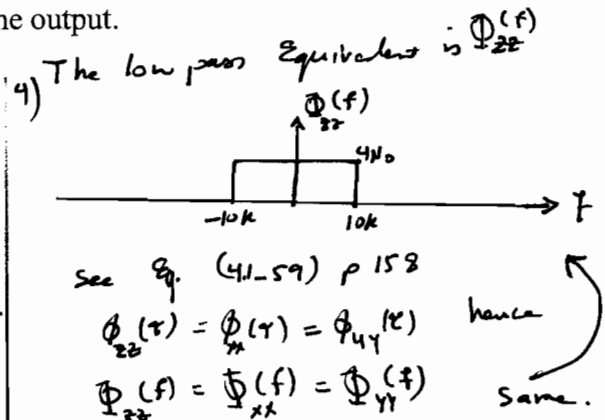 he output.
4) The low pass Equivalent is Φ_zz(f)
Φ_zz(f)
4N₀
-10k 10k f
see Eq. (4.1-59) p 158
ϕ_zz(τ) = ϕ_xx(τ) = ϕ_yy(τ) hence
Φ_zz(f) = Φ_xx(f) = Φ_yy(f) same.